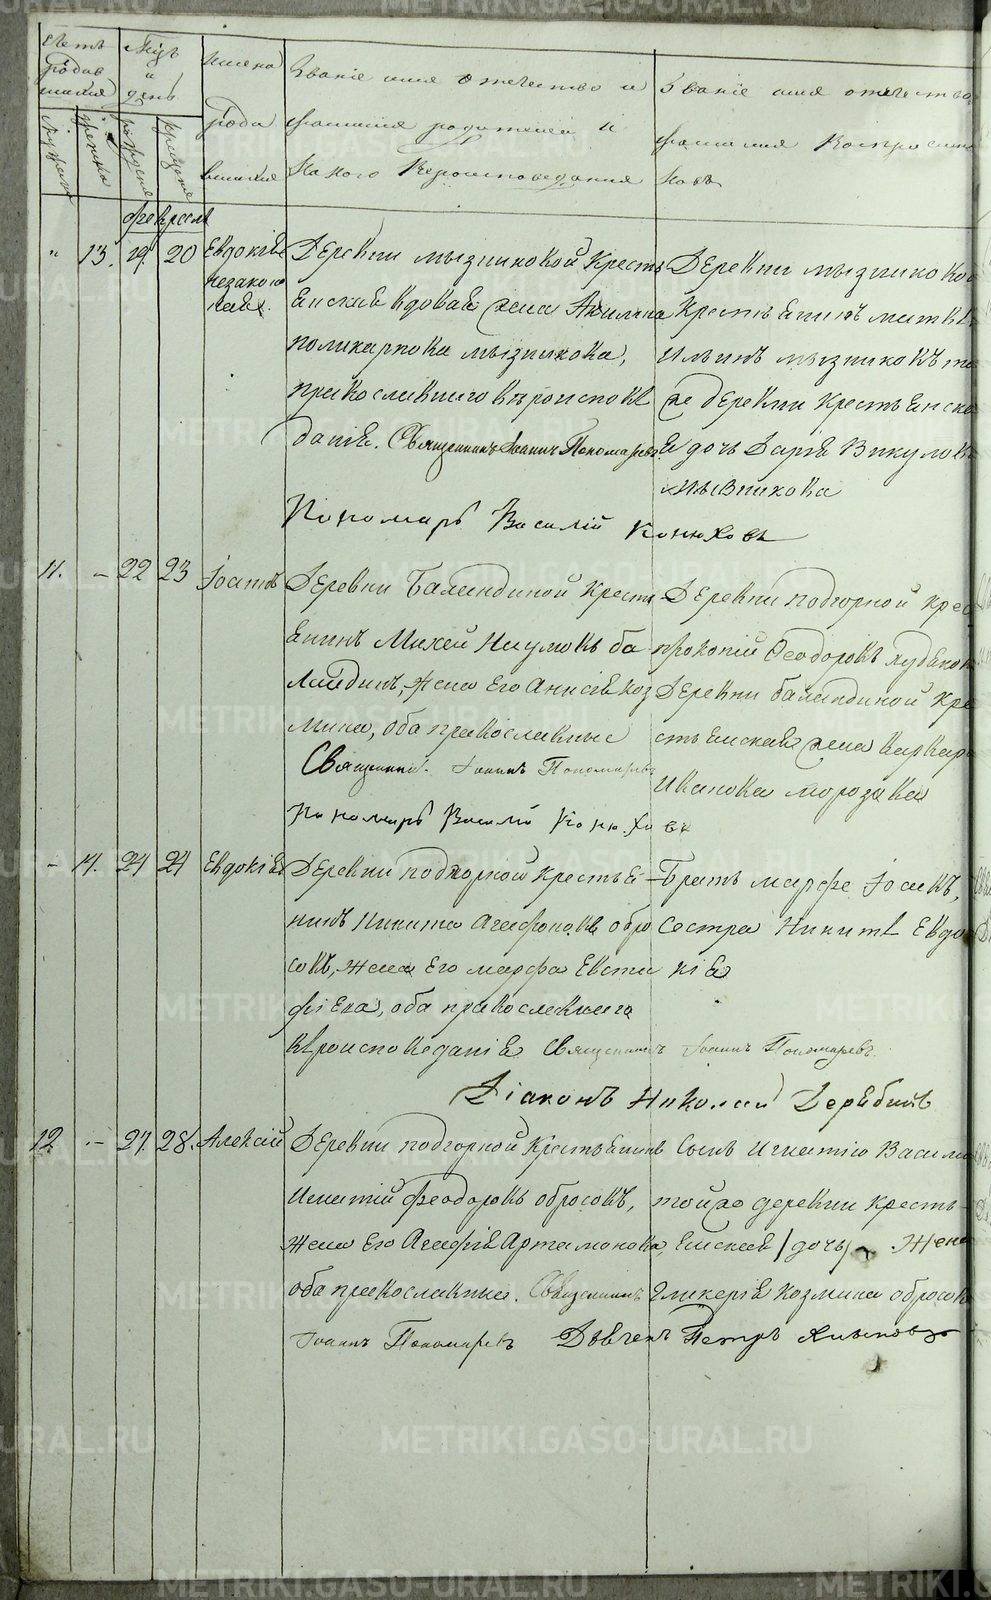 Счетъ родив шихся
Мужеска
женска
Мѣсяцъ и день
рожденія
крещенія
Имена
родив
шихся
Званіе имя отечество и
фамилія родителей и
какого вѣроисповѣданія
Званіе имя отечество
фамилія Воспріемни
ковъ
февраль
" 13. 19. 20
Евдокія
незаконо
Деревни мызниковой Кресть
енская вдовая жена Акилина
поликарпова мызникова,
православнаго вѣроисповѣ
данія. Священникъ Іоаннъ Пономаревъ
Пономарь Василій Конюховъ
Деревни мызниково
Крестьенинъ
Ильинъ мызниковъ то
же деревни Крестьенска
я дочь Дарья Викулова
мызникова
11. – 22 23
Іоаннъ
Деревни Баландиной Кресть
енинъ Михей Наумовъ ба
ландинъ, жена Его Анисія Коз
мина, оба православные
Священникъ Іоаннъ Пономаревъ
Пономарь Василій Конюховъ
Деревни подгорной крес
прокопій Феодоровъ худяков
Деревни баландиной кре
стьенская жена Варвара
Иванова морозова
– 14. 24 24
Евдокія
Деревни подгорной Крестье
нинъ Никита Агафоновъ обро
совъ, жена Его марфа Евста
фіева, оба православнаго
вѣроисповеданія Священникъ Іоаннъ Пономаревъ.
Діаконъ Николай Дерябинъ
Братъ марфе Іоаквъ,
Сестра Никитѣ Евдо
кія
12. – 27. 28.
Алексій
Деревни подгорной Крестьенинъ
Игнатій Феодоровъ обросовъ,
жена Его Агафія Артамонова,
оба православные. Священникъ
Іоаннъ Пономаревъ Дьячекъ Петръ
Сынъ Игнатію Васил
той же деревни кресть
енская /дочь/ жена
Гликерія Козмина обросова